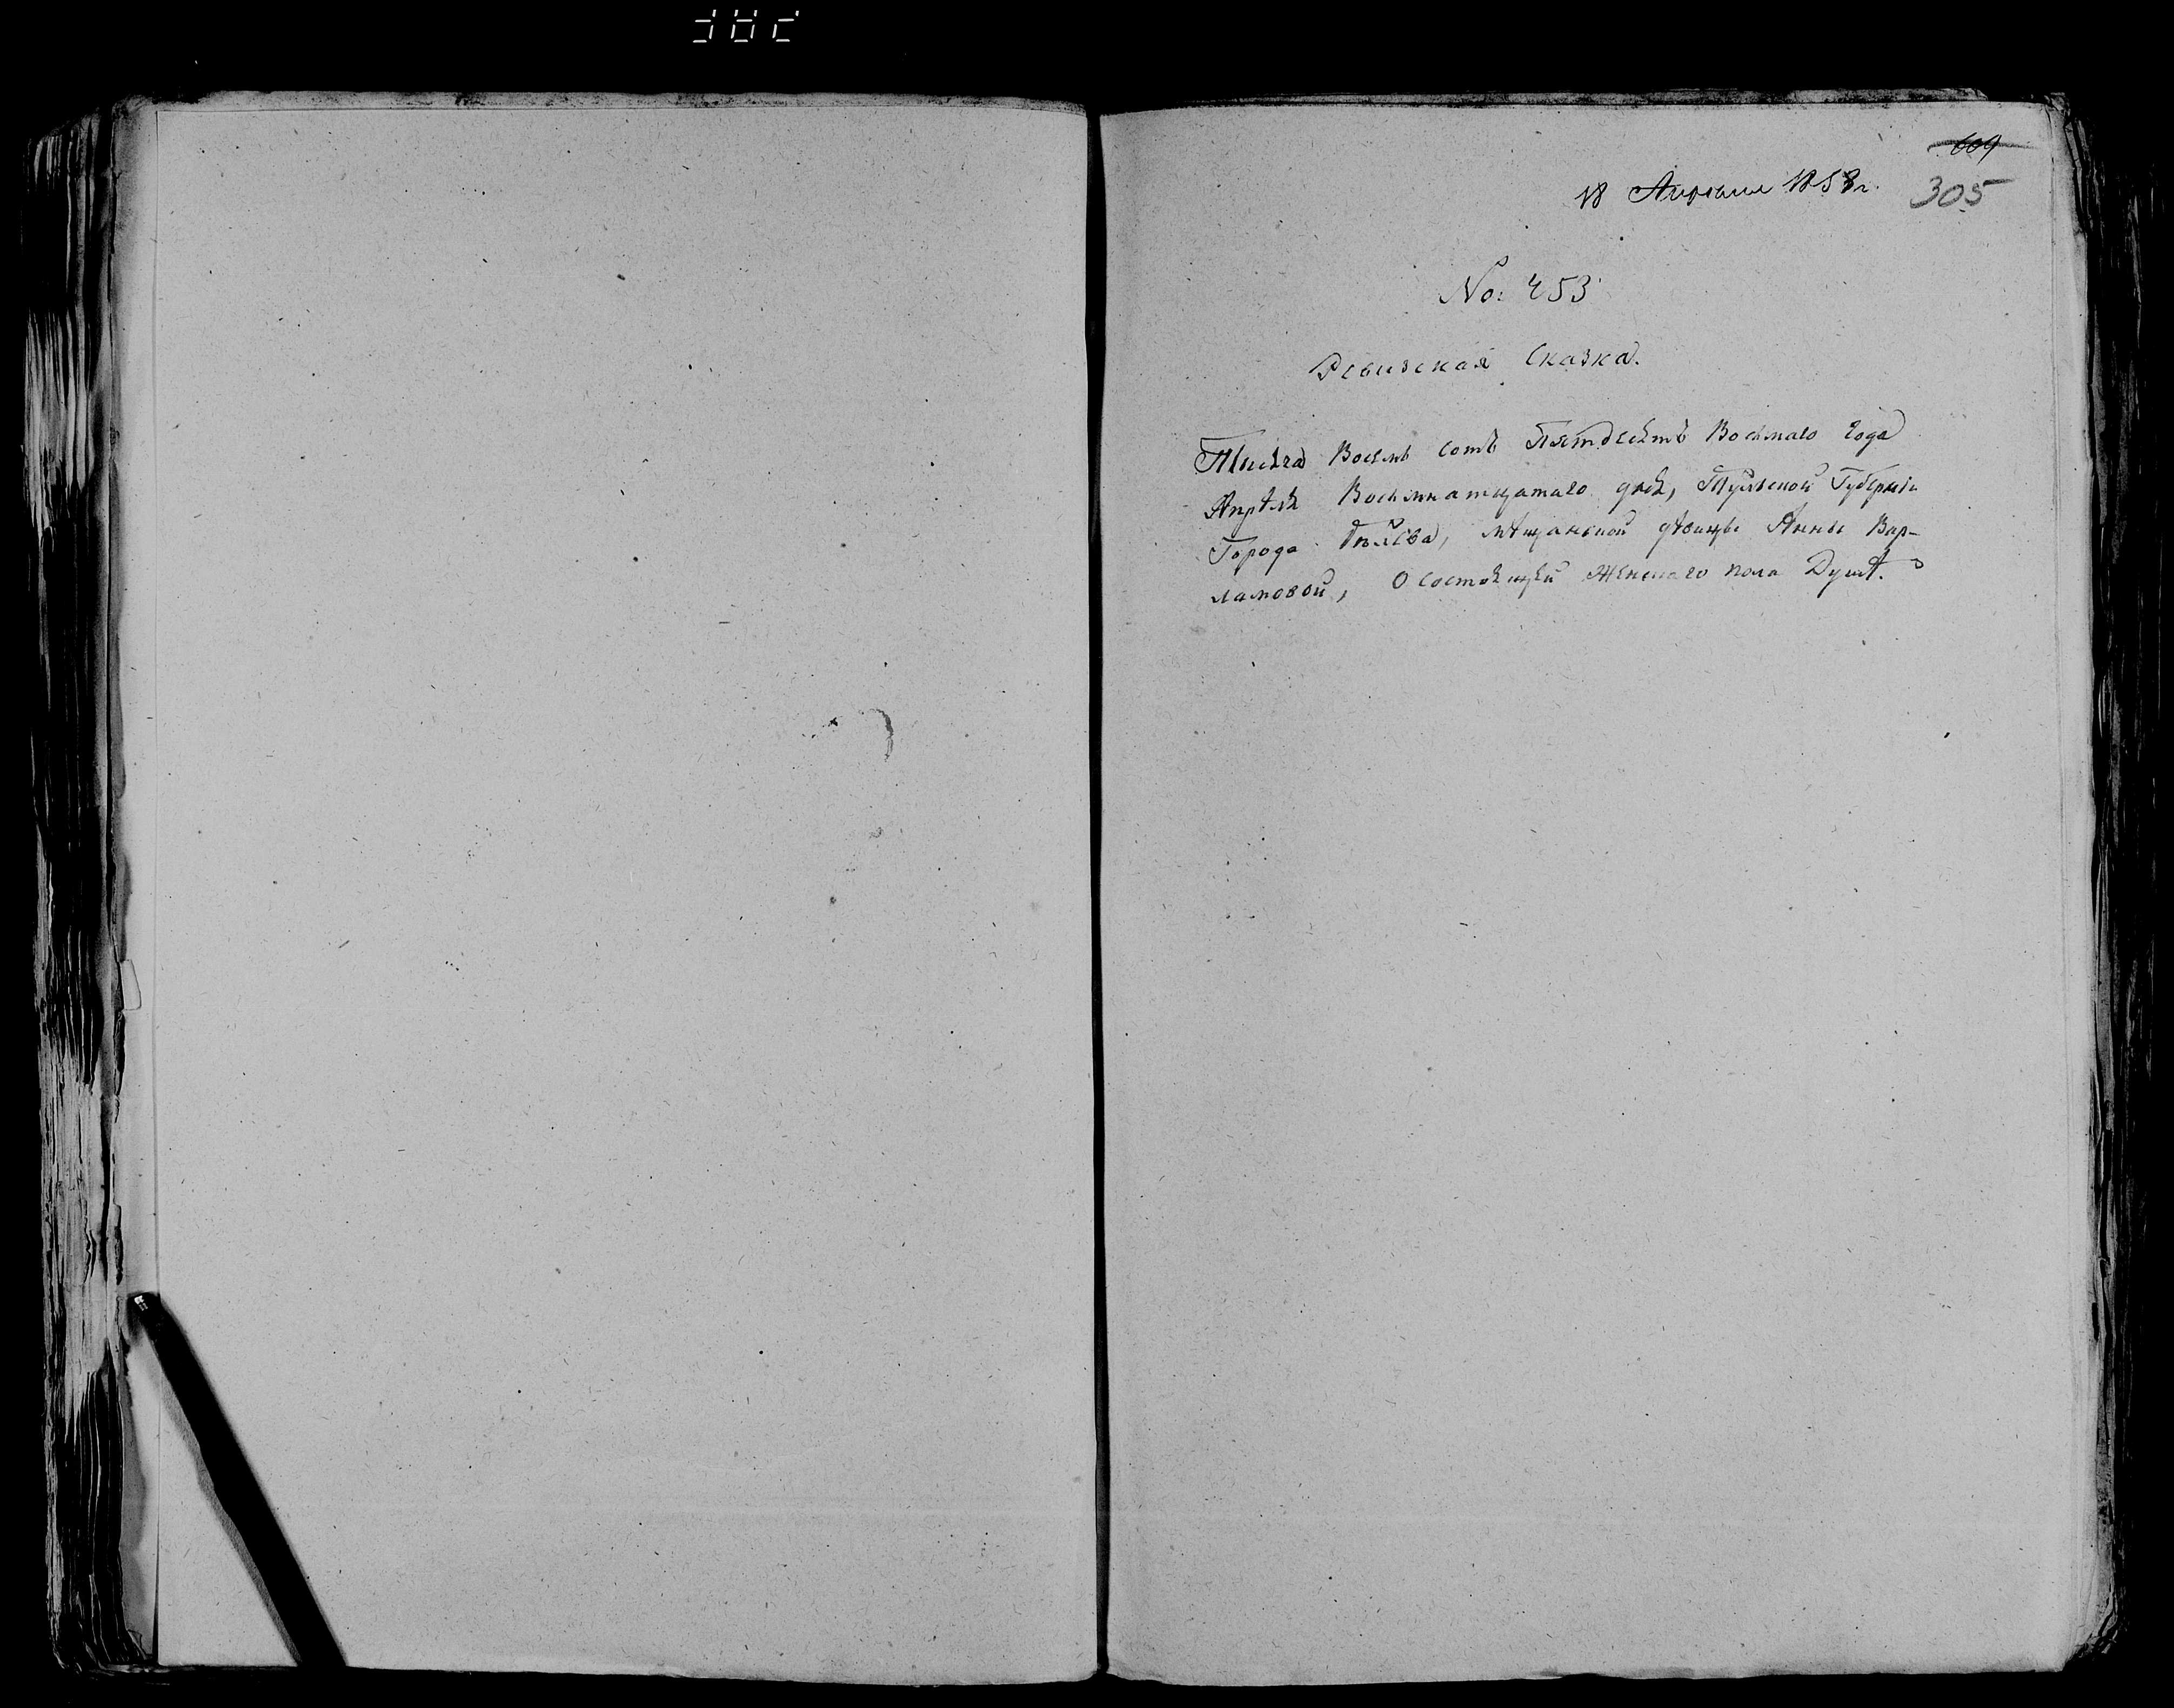 609
18 Апреля 1858 г. 305
No: 453
Ревизская Сказка.
Тысяча Восемь сотъ Пятдесятъ Восмаго Года
Апрѣля Восемнатцатаго дня, Тульской Губерніи
Города Бѣлева, мѣщанской дѣвицы Анны Вар-
ламовой, О состоящей Женскаго пола Душѣ.